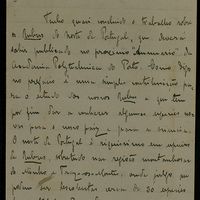 Tenho quasi concluido o trabalho sobre
os Rubus do norte de Portugal, que deverá
ser publicado no proximo Annuario da
Academia Polytechnica do Porto. Como digo
no prefacio é uma simples contribuição para
o estudo dos nossos Rubus e que tem
por fim dar a conhecer algumas especies novas
para o nosso paiz, para a sciencia.
O norte de Portugal é riquissimo em especies
de Rubus, sobretudo nas regiões montanhosas
do Minho e Traz-os-Montes, onde julgo que
podem ser descobertas cerca de 30 especies